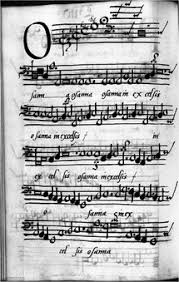 O
sann osanna osannam ex celsis
osanna mexcelsis / in
ex cel sis osanna mexcelsis /
o sanna mex
cel sis osanna